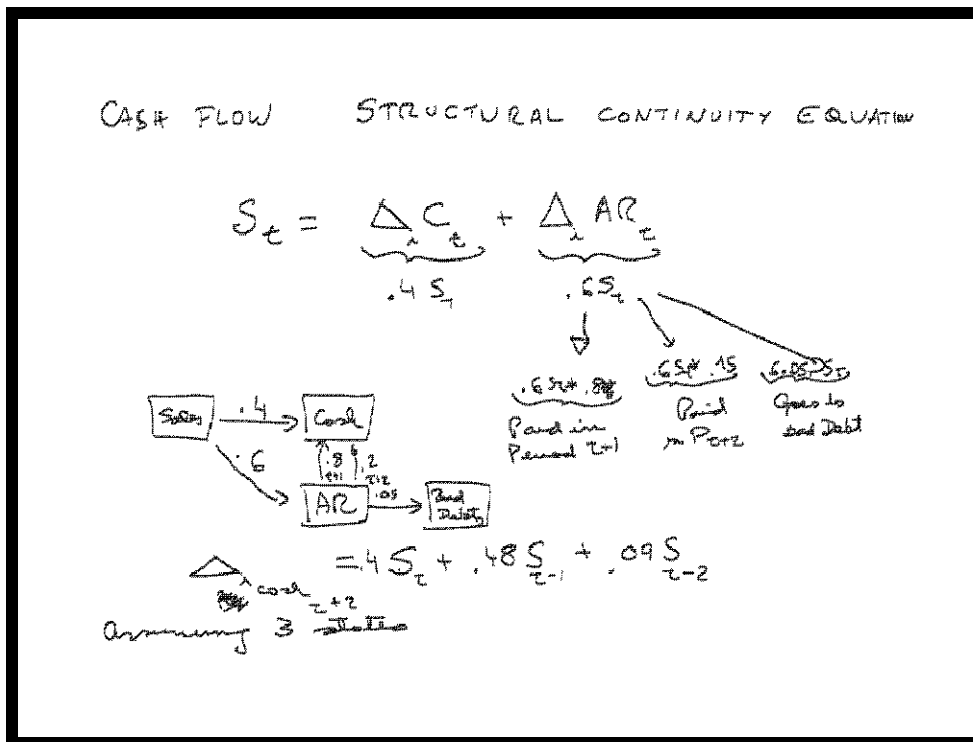 CASH FLOW STRUCTURAL CONTINUITY EQUATION
S_t = Δ_i C_t + Δ_i AR_t
.4 S_t .6 S_t
.6 S_t * .8 .6 S_t * .15 .6 * .05 S_t
Paid in Period t+1
Paid in P_t+2
Goes to bad Debt
Sales .4 Cash
.6 .8 t+1 .2 t+2
AR .05 Bad Debts
Δ_i cash t+2 = .4 S_t + .48 S_t-1 + .09 S_t-2
Assuming 3